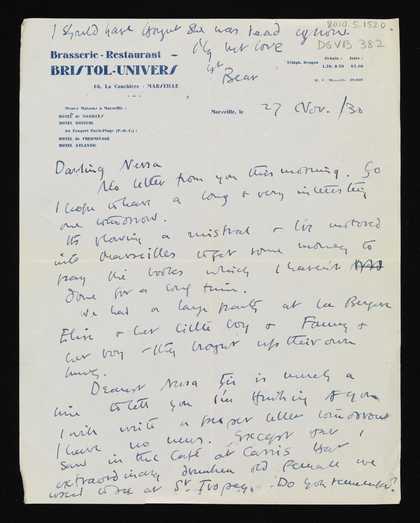 I should have thought she was dead by now.
My best love
yr
Bear
8010.5.1520
DGVB 382
Brasserie-Restaurant
BRISTOL-UNIVERS
16, La Canebière - MARSEILLE
Mêmes Maisons à Marseille :
HOTEL de NOAILLES
HOTEL
Au Touquet Paris-Plage (P.-de-C.) :
HOTEL de l'HERMITAGE
HOTEL ATLANTIC
Marseille, le 27 Nov. /30
Darling Nessa
No letter from you this morning. So
I hope to have a long & very interesting
one tomorrow.
Its blowing a mistral & I've motored
into Marseilles to get some money to
pay the books which I haven't
done for a long time.
We had a large party at La Bergère
Elise & her little boy & Fanny &
her boy - they brought up their own
Dearest Nessa this is merely a
line to tell you I'm thinking of you
I will write a proper letter tomorrow
I have no news. Except that I
saw in the Café at Cassis that
extraordinary drunken old female we
used to see at St. Tropez. Do you remember?